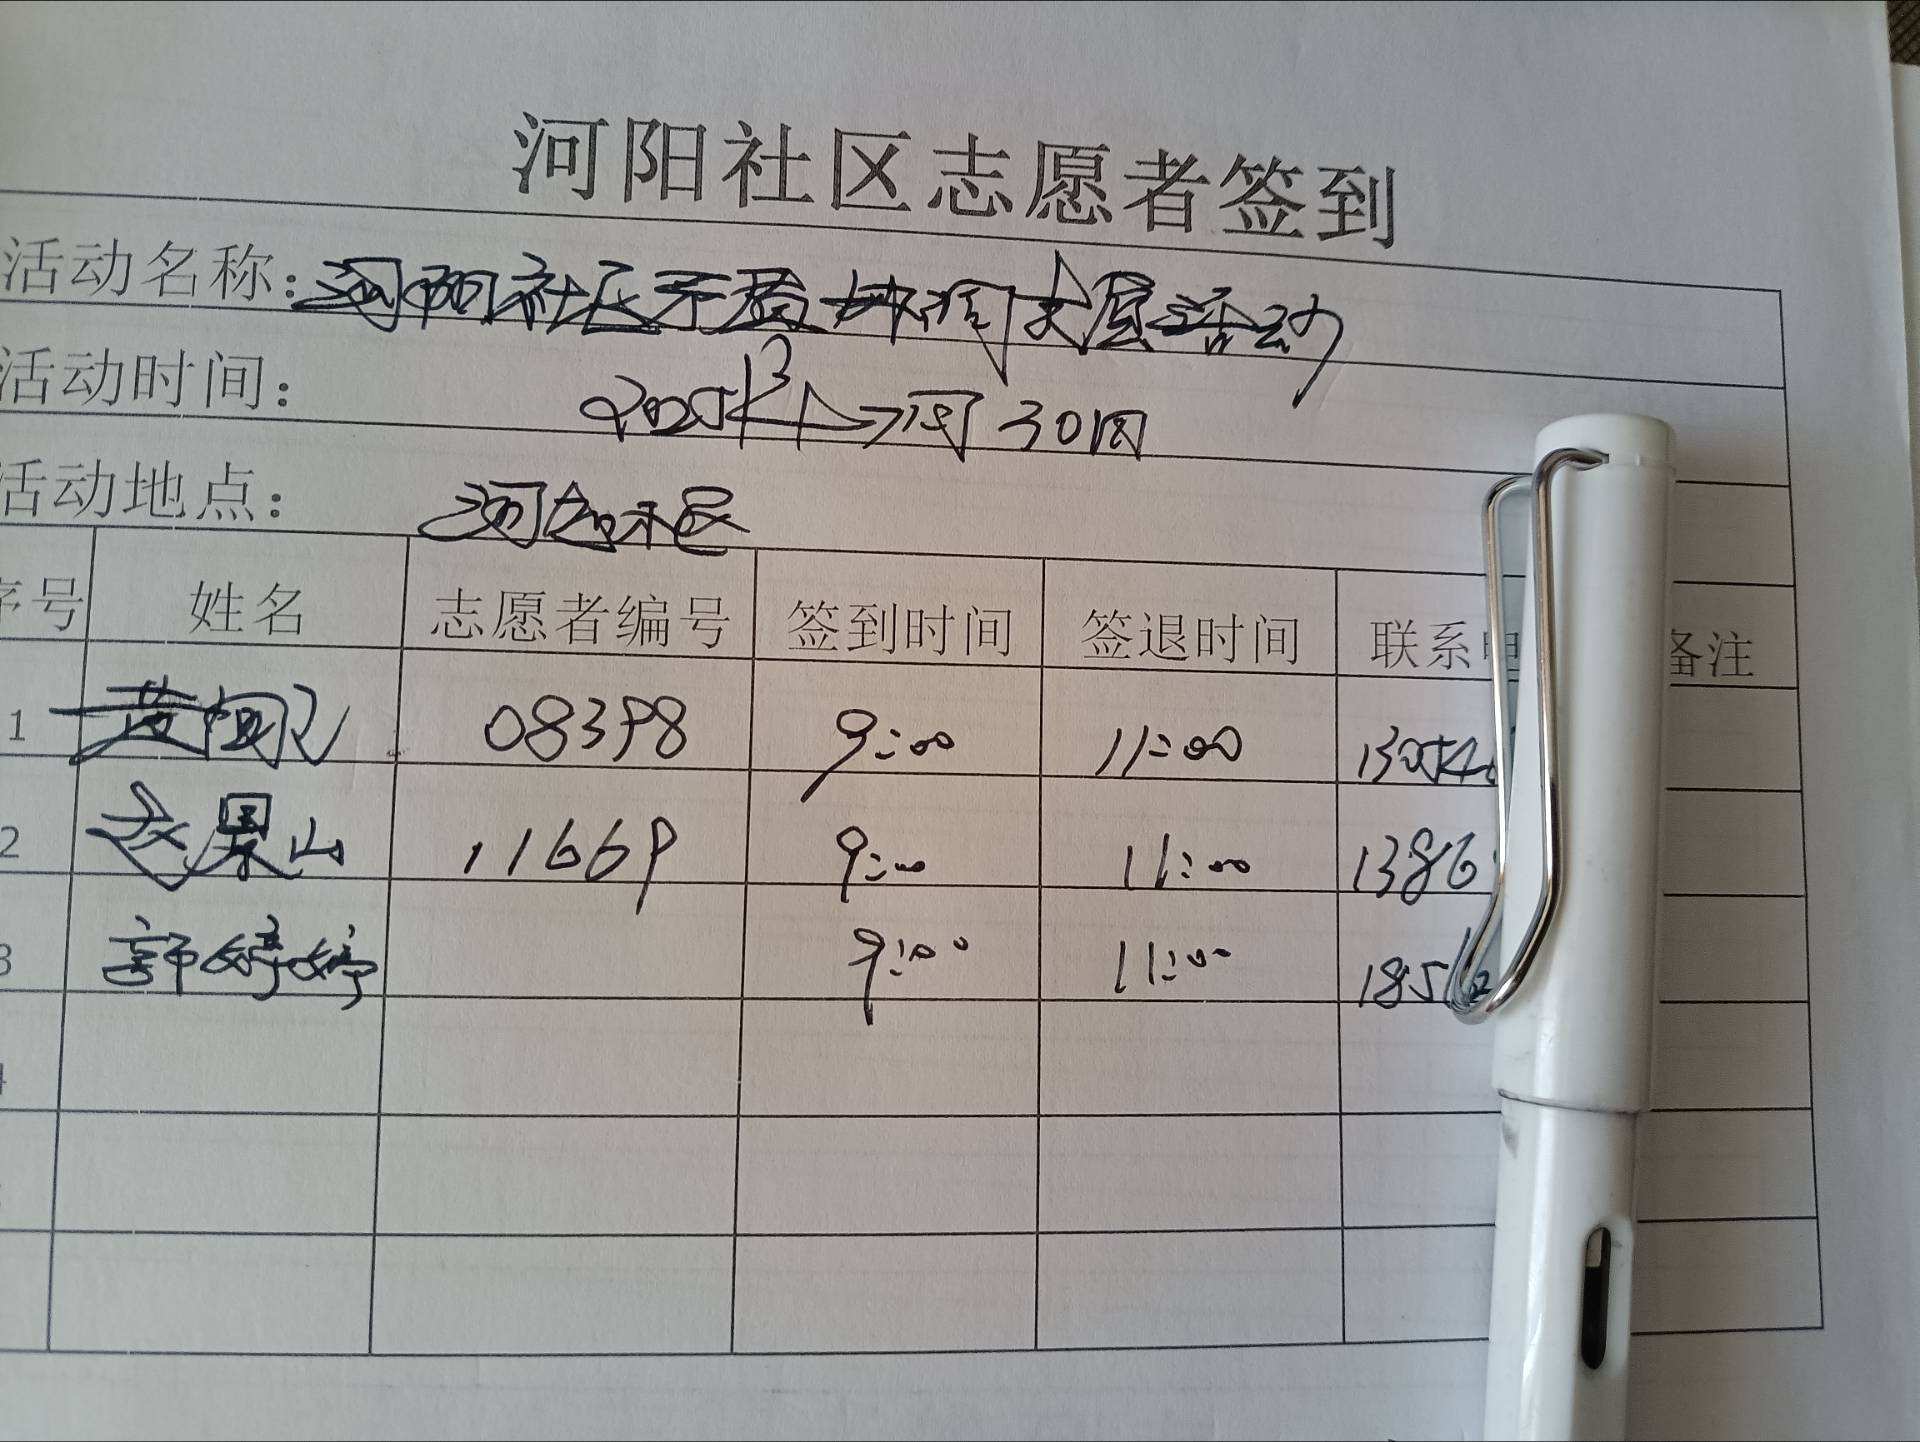 河阳社区志愿者签到
活动名称：河阳社区开展 活动
活动时间： 2025年3月 30日
活动地点： 河阳社区
序号 姓名 志愿者编号 签到时间 签退时间 联系电 备注
1 08398 9:00 11:00 1305
2 山 11669 9:00 11:00 1386
3 郭婷婷 9:00 11:00 185
4